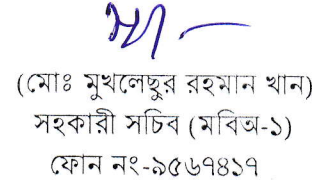 (মোঃ মুখলেছুর রহমান খান)
সহকারী সচিব (মবিঅ-১)
ফোন নং-৯৫৬৭৪১৭